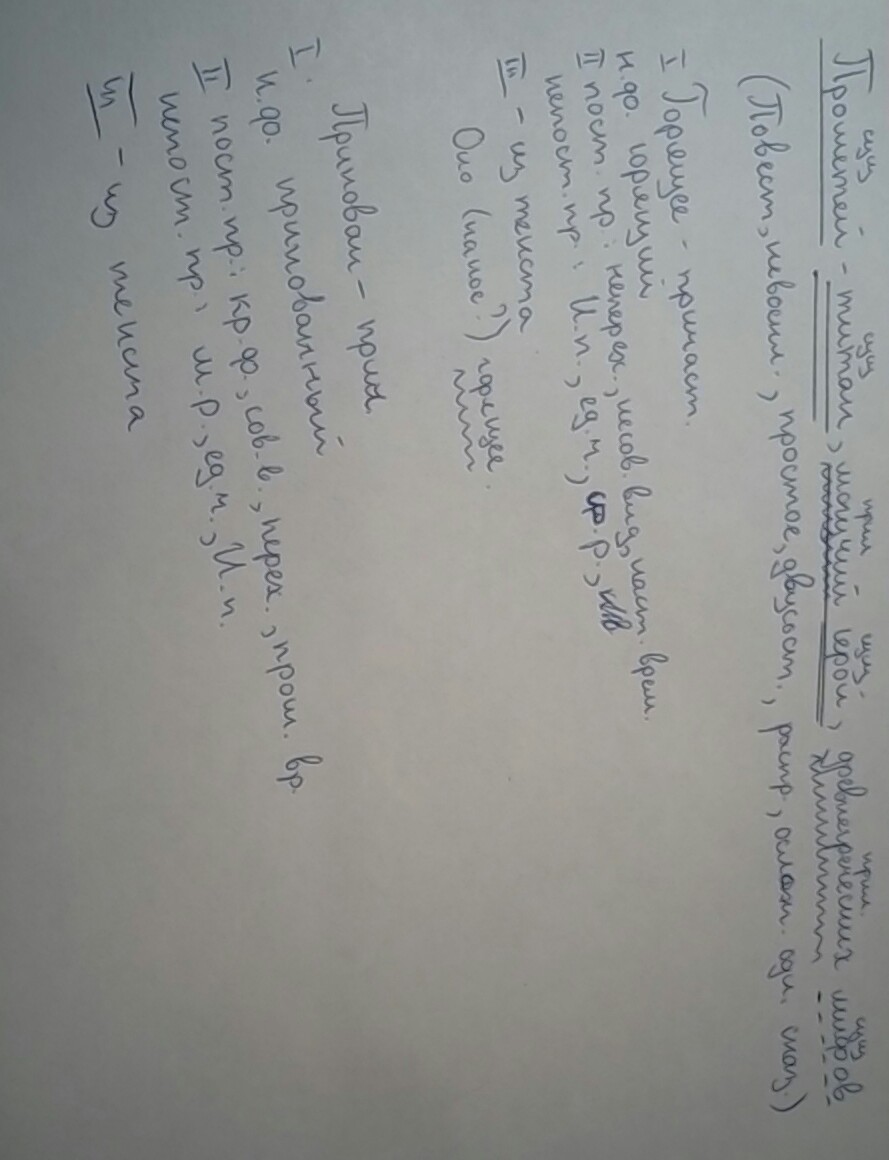 сущ сущ прил сущ. прил. сущ
Прометей - титан, могучий герой, древнегреческих мифов
(Повест., невоскл., простое, двусост., распр., ослож. одн. сказ.)
I Горящее - причаст.
н.ф. горящий
II пост. пр: неперех., несов. вид, наст. врем.
непост. пр: И.п., ед.ч., ср.р.,
III - из текста
Оно (какое?) горящее.
Прикован - прич.
I.
н.ф. прикованный
II пост. пр.: кр.ф., сов.в., перех., прош. вр.
непост. пр: м.р., ед.ч., И.п.
III - из текста